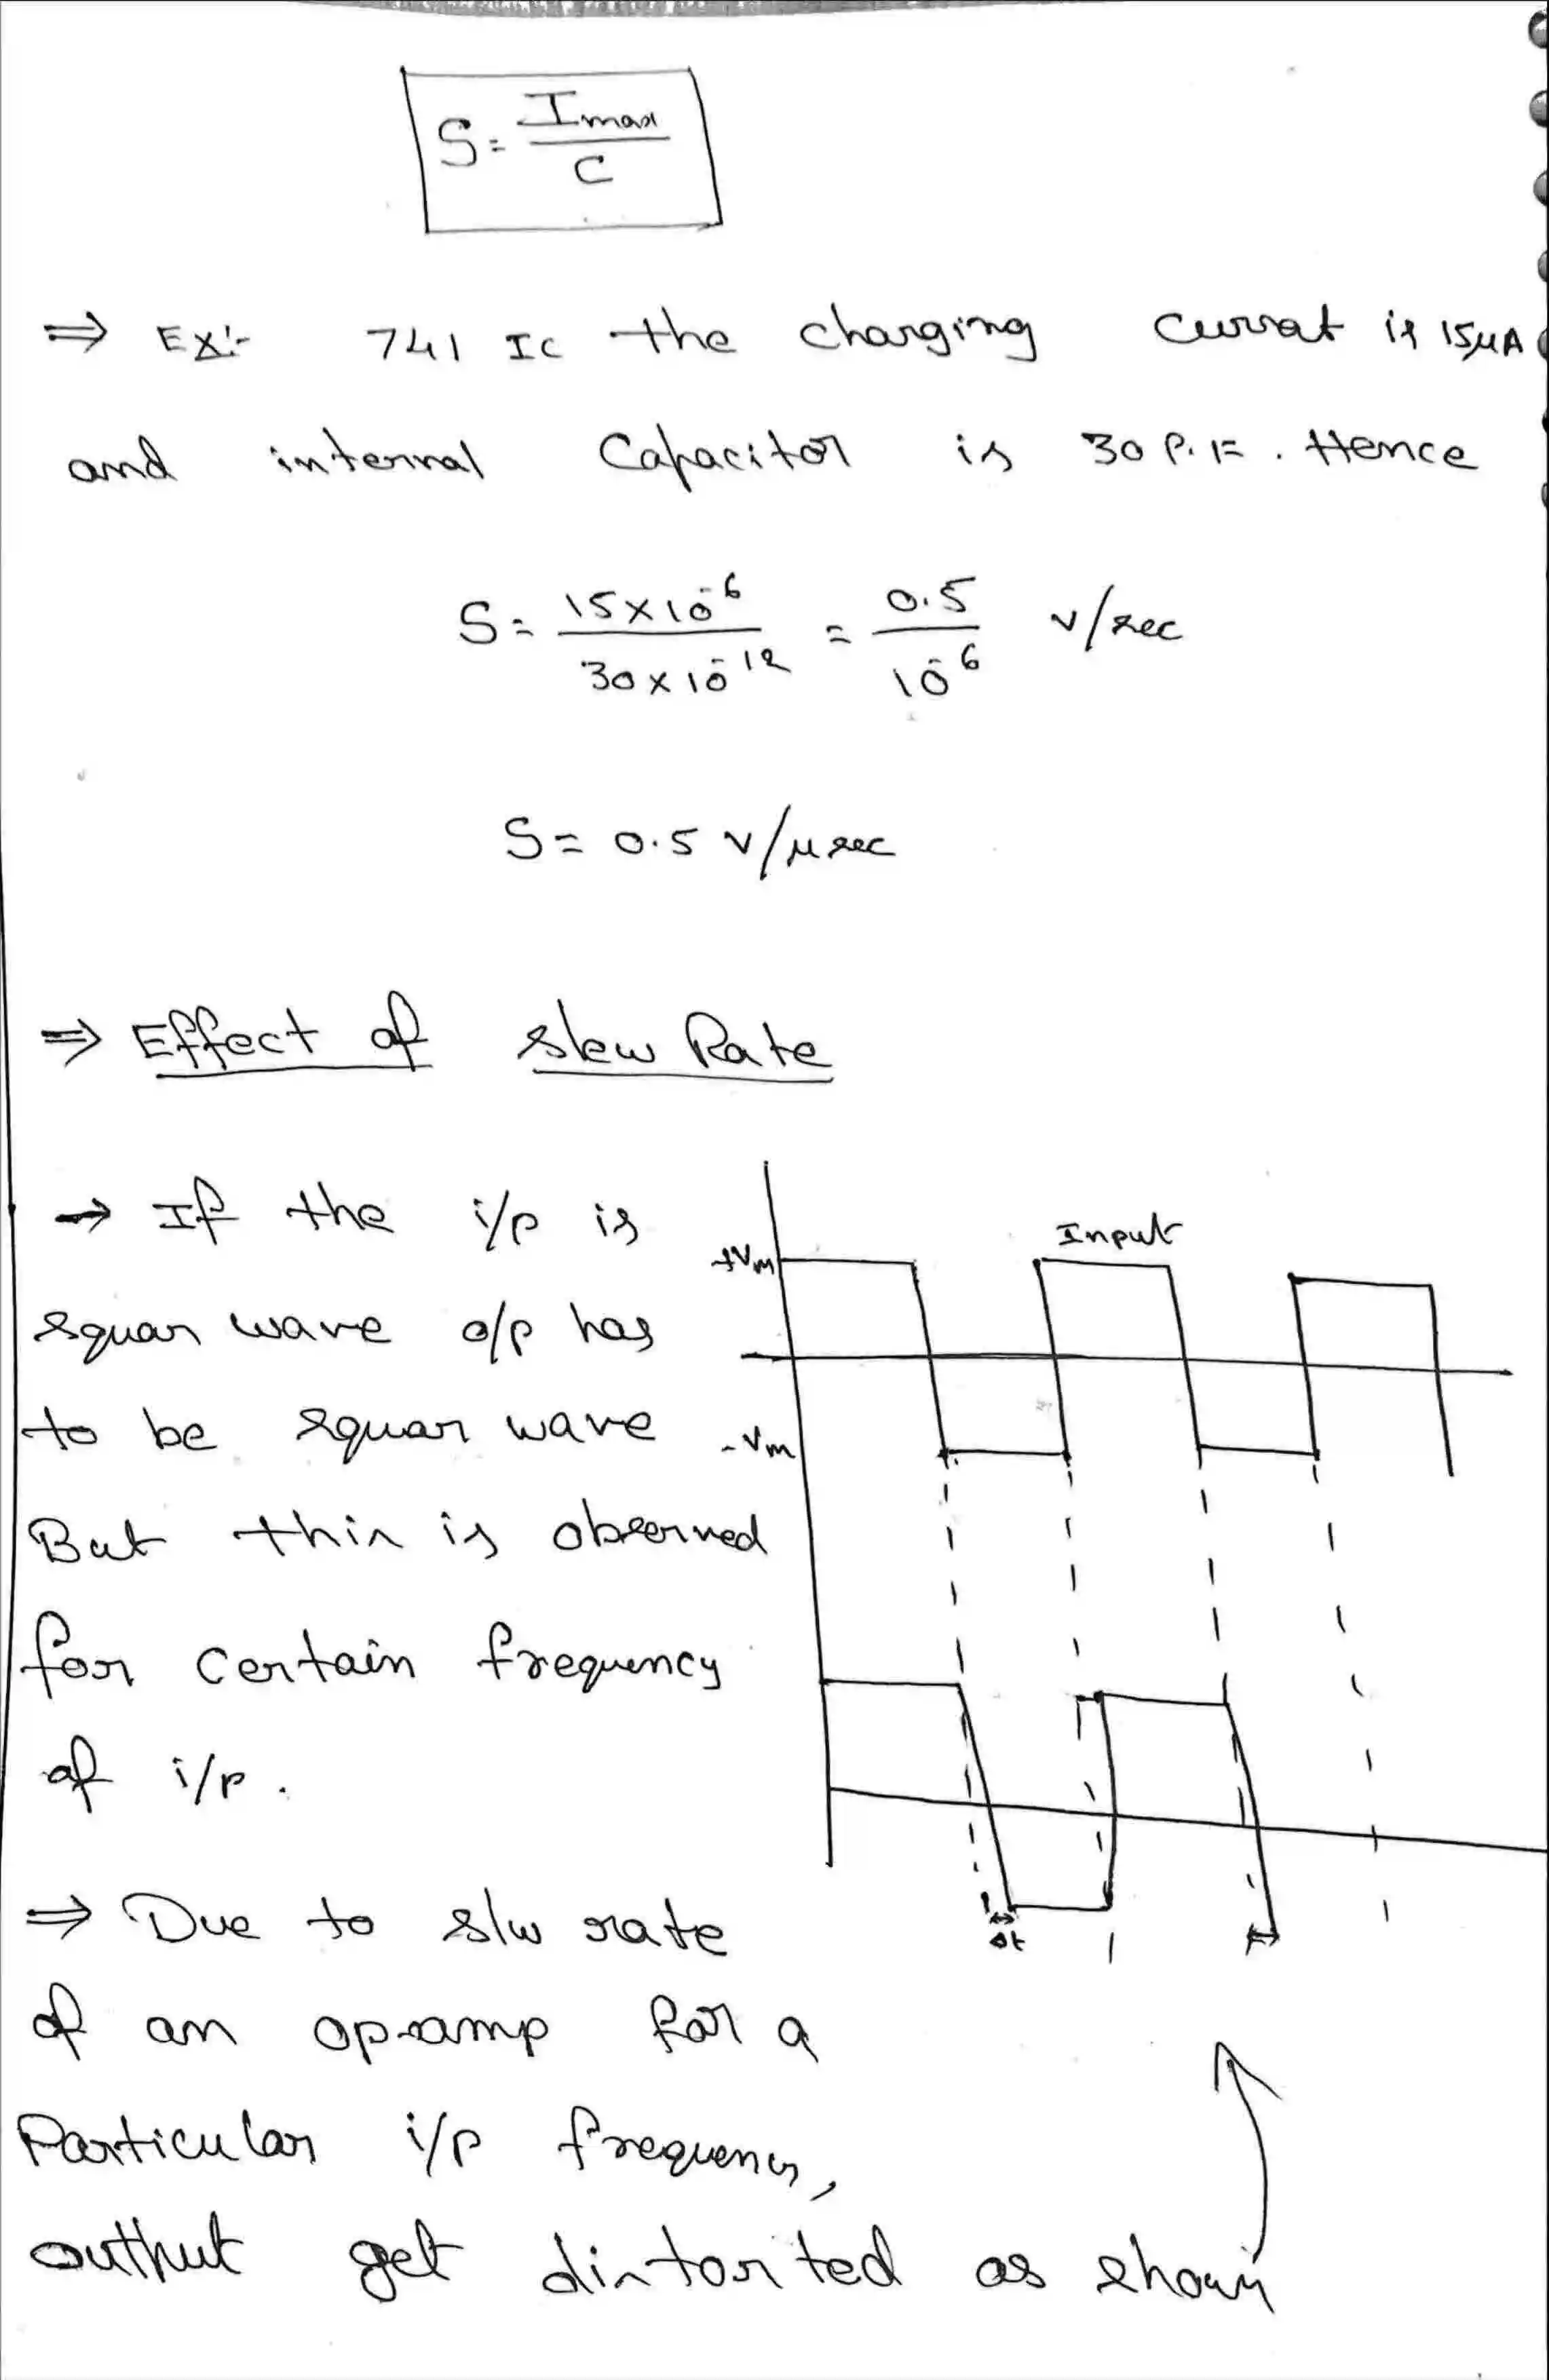 S = Imax / C
⇒ Ex:- 741 IC the charging currat is 15μA
and internal Capacitor is 30 P.F. Hence
S = 15×10⁻⁶ / 30×10⁻¹² = 0.5 / 10⁻⁶ v/sec
S = 0.5 v/μsec
⇒ Effect of slew Rate
→ If the i/p is
squar wave o/p has
to be squar wave
But this is observed
for certain frequency
of i/p.
⇒ Due to slw rate
of an op-amp for a
Particular i/p frequency,
output get distorted as shown
Input
+Vm
-Vm
Δt